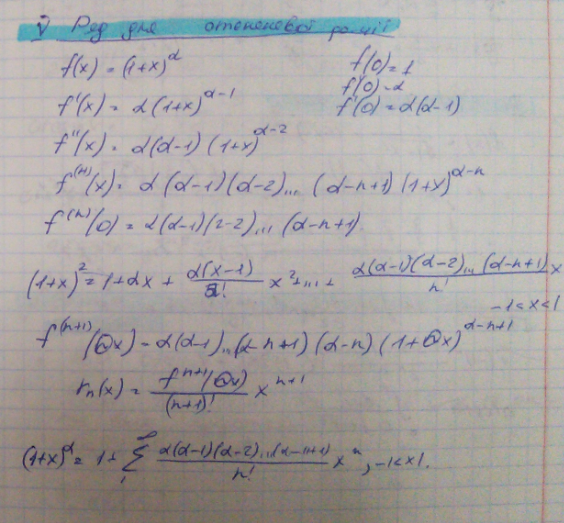 V) Ряд для степеневої функції
f(x) = (1+x)^α f(0)=1
f'(x) = α(1+x)^{α-1} f'(0)=α
f''(x) = α(α-1)(1+x)^{α-2} f''(0)=α(α-1)
f^{(n)}(x) = α(α-1)(α-2)...(α-n+1)(1+x)^{α-n}
f^{(n)}(0) = α(α-1)(α-2)...(α-n+1)
(1+x)^α = 1+αx + \frac{α(α-1)}{2!} x^2+...+ \frac{α(α-1)(α-2)...(α-n+1)}{n!} x
-1<x<1
f^{(n+1)}(Θx) = α(α-1)...(α-n+1)(α-n)(1+Θx)^{α-n+1}
r_n(x) = \frac{f^{n+1}(Θx)}{(n+1)!} x^{n+1}
(1+x)^α = 1+ \sum_1^∞ \frac{α(α-1)(α-2)...(α-n+1)}{n!} x^n, -1<x1.